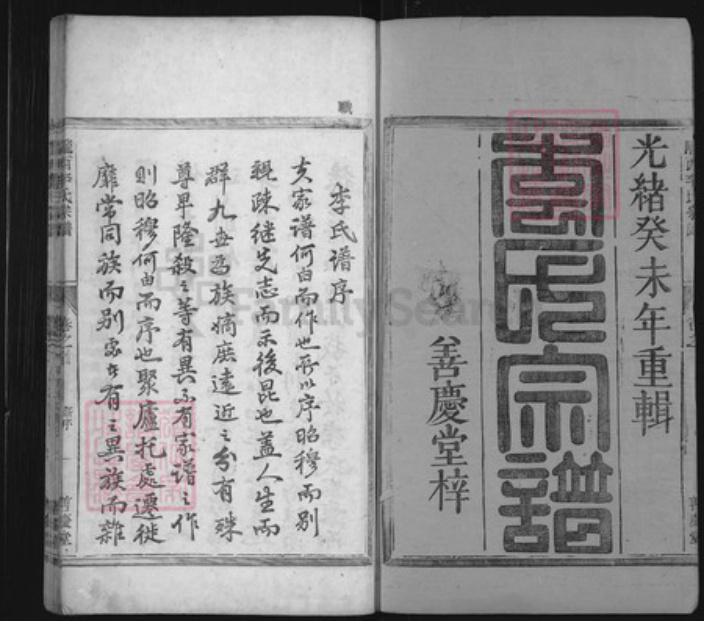 光緒癸未年重輯
李氏宗譜
善慶堂梓
李氏譜序
夫家谱何由而作也所以序昭穆而别
親疎继先志而示後昆也盖人生而
群九世为族嫡庶遠近之分有殊
尊卑隆殺之等有異不有家谱之作
則昭穆何由而序也聚廬托處遷徙
靡常同族而别處者有之異族而雜
隴西李氏宗譜
卷之首
善慶堂
FamilySearch